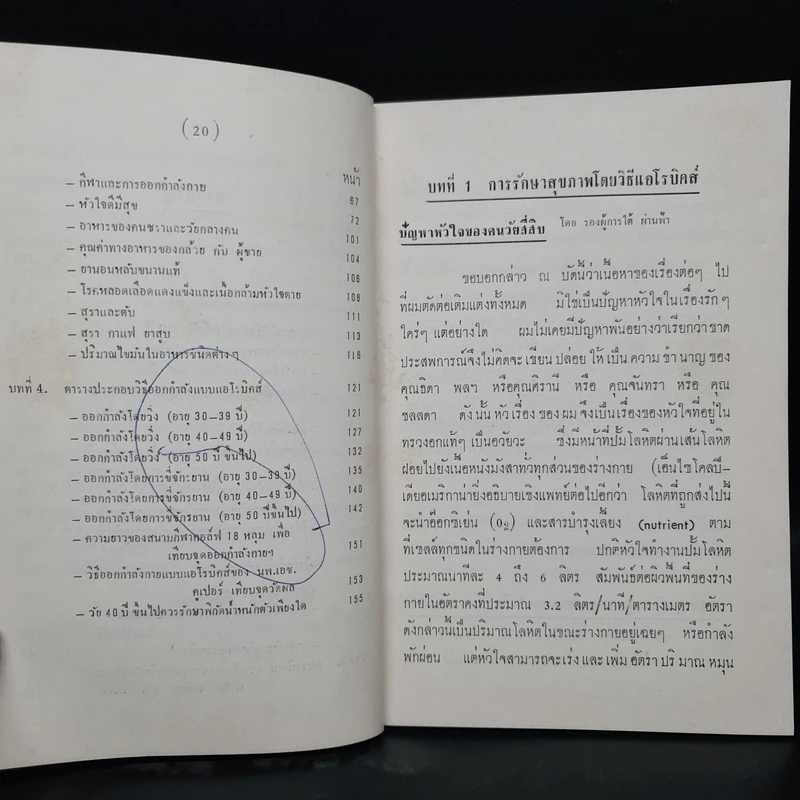 (20)
หน้า
– กีฬาและการออกกำลังกาย 67
– หัวใจดีมีสุข 72
– อาหารของคนชราและวัยกลางคน 101
– คุณค่าทางอาหารของกล้วย กับ ผู้ชาย 104
– ยานอนหลับขนานแท้ 106
– โรคหลอดเลือดแดงแข็งและเนื้อกล้ามหัวใจตาย 108
– สุราและตับ 111
– สุรา กาแฟ ยาสูบ 113
– ปริมาณไขมันในอาหารชนิดต่างๆ 116
บทที่ 4. ตารางประกอบวิธีออกกำลังแบบแอโรบิคส์ 121
– ออกกำลังโดยวิ่ง (อายุ 30–39 ปี) 121
– ออกกำลังโดยวิ่ง (อายุ 40–49 ปี) 127
– ออกกำลังโดยวิ่ง (อายุ 50 ปี ขึ้นไป) 132
– ออกกำลังโดยการขี่จักรยาน (อายุ 30–39 ปี) 135
– ออกกำลังโดยการขี่จักรยาน (อายุ 40–49 ปี) 140
– ออกกำลังโดยการขี่จักรยาน (อายุ 50 ปีขึ้นไป) 142
– ความยาวของสนามกีฬากอล์ฟ 18 หลุม เพื่อ
เทียบจุดออกกำลังกายฯ 151
– วิธีออกกำลังกายแบบแอโรบิคส์ของ นพ.เอช.
คูเปอร์ เทียบจุดวัดผล 153
– วัย 40 ปี ขึ้นไปควรรักษาพิกัดน้ำหนักตัวเพียงใด 155
บทที่ 1 การรักษาสุขภาพโดยวิธีแอโรบิคส์
ปัญหาหัวใจของคนวัยสี่สิบ โดย รองผู้การใต้ ผ่านฟ้า
ขอบอกกล่าว ณ บัดนี้ว่าเนื้อหาของเรื่องต่อๆ ไป
ที่ผมตัดต่อเติมแต่งทั้งหมด มิใช่เป็นปัญหาหัวใจในเรื่องรักๆ
ใคร่ๆ แต่อย่างใด ผมไม่เคยมีปัญหาพันอย่างว่าเรียกว่าขาด
ประสพการณ์จึงไม่คิดจะ เขียน ปล่อย ให้ เป็น ความ ชำนาญ ของ
คุณธิดา พลฯ หรือคุณศิรานี หรือ คุณจันทรา หรือ คุณ
ชลลดา ดัง นั้น หัว เรื่อง ของ ผม จึงเป็นเรื่องของหัวใจที่อยู่ใน
ทรวงอกแท้ๆ เป็นอวัยวะ ซึ่งมีหน้าที่ปั๊มโลหิตผ่านเส้นโลหิต
ฝอยไปยังเนื้อหนังมังสาทั่วทุกส่วนของร่างกาย (เอ็นไซโคลปี–
เดียอเมริกาน่ายังอธิบายเชิงแพทย์ต่อไปอีกว่า โลหิตที่ถูกส่งไปนี้
จะนำอ๊อกซิเย่น (O₂) และสารบำรุงเลี้ยง (nutrient) ตาม
ที่เซลล์ทุกชนิดในร่างกายต้องการ ปกติหัวใจทำงานปั๊มโลหิต
ประมาณนาทีละ 4 ถึง 6 ลิตร สัมพันธ์ต่อผิวพื้นที่ของร่าง
กายในอัตราคงที่ประมาณ 3.2 ลิตร/นาที/ตารางเมตร อัตรา
ดังกล่าวนี้เป็นปริมาณโลหิตในขณะร่างกายอยู่เฉยๆ หรือกำลัง
พักผ่อน แต่หัวใจสามารถจะเร่ง และ เพิ่ม อัตรา ปริ มาณ หมุน